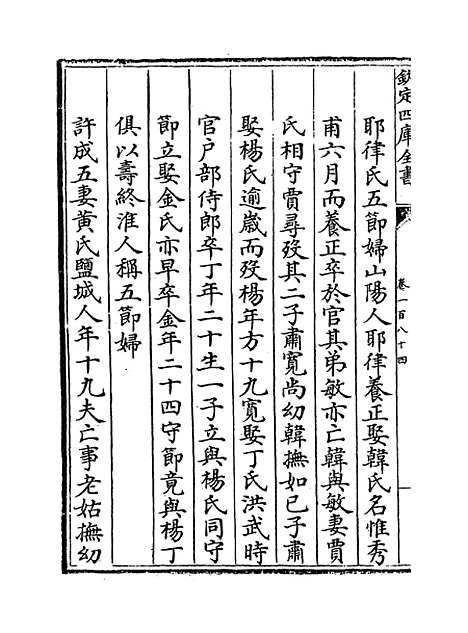 欽定四庫全書
卷一百八十四
耶律氏五節婦山陽人耶律養正娶韓氏名惟秀
甫六月而養正卒於官其弟敏亦亡韓與敏妻賈
氏相守賈尋歿其二子肅寛尚幼韓撫如已子肅
娶楊氏逾歲而歿楊年方十九寛娶丁氏洪武時
官户部侍郎卒丁年二十生一子立與楊氏同守
節立娶金氏亦早卒金年二十四守節竟與楊丁
俱以壽終淮人稱五節婦
許成五妻黄氏鹽城人年十九夫亡事老姑撫幼